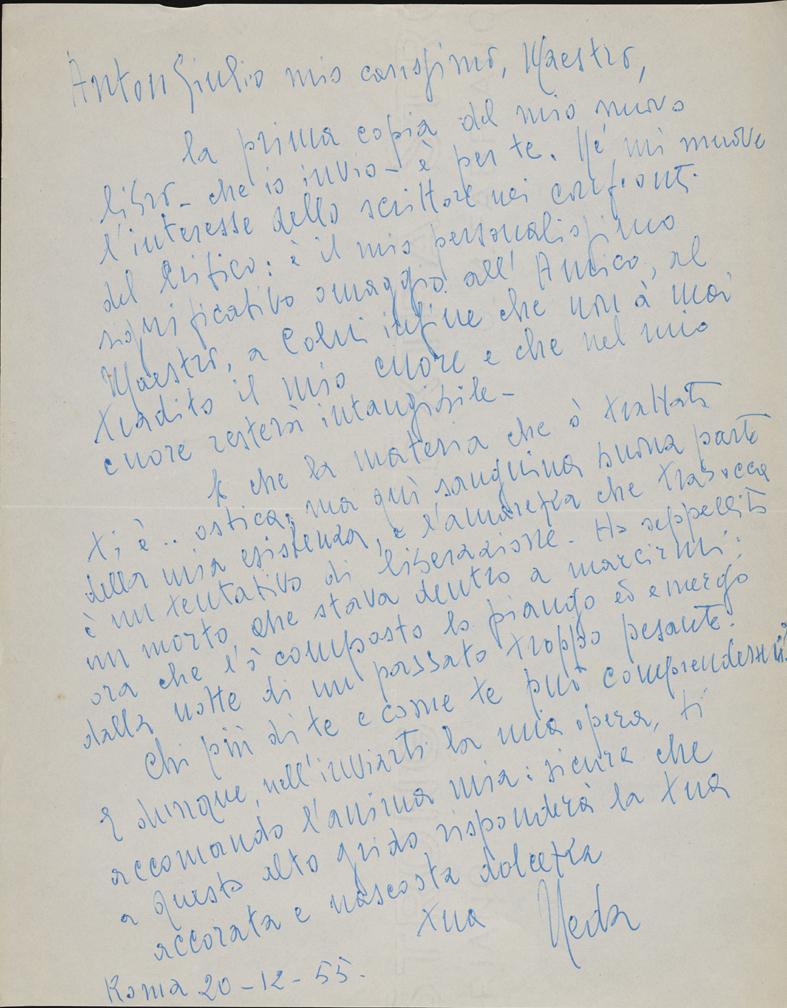 AntonGiulio mio carissimo, Maestro,
la prima copia del mio nuovo
libro - che io invio - è per te. Né mi muove
l'interesse dello scrittore nei confronti
del Critico: è il mio personalissimo
significativo omaggio all'Amico, al
Maestro, a Colui infine che non à mai
tradito il mio cuore e che nel mio
cuore resterà intangibile -
So che la materia che ò trattata
ti è .. ostica, ma quì sanguina buona parte
della mia esistenza, e l'amarezza che trabocca
è un tentativo di liberazione. Ho seppellito
un morto che stava dentro a marcirmi:
ora che l'ò composto lo piango ed emergo
dalla notte di un passato troppo pesante.
Chi più di te e come te può comprendermi?
E dunque, nell'inviarti la mia opera, ti
accomando l'anima mia: sicura che
a questo alto grido risponderà la tua
accorata e nascosta dolcezza
tua
Roma 20-12-55.